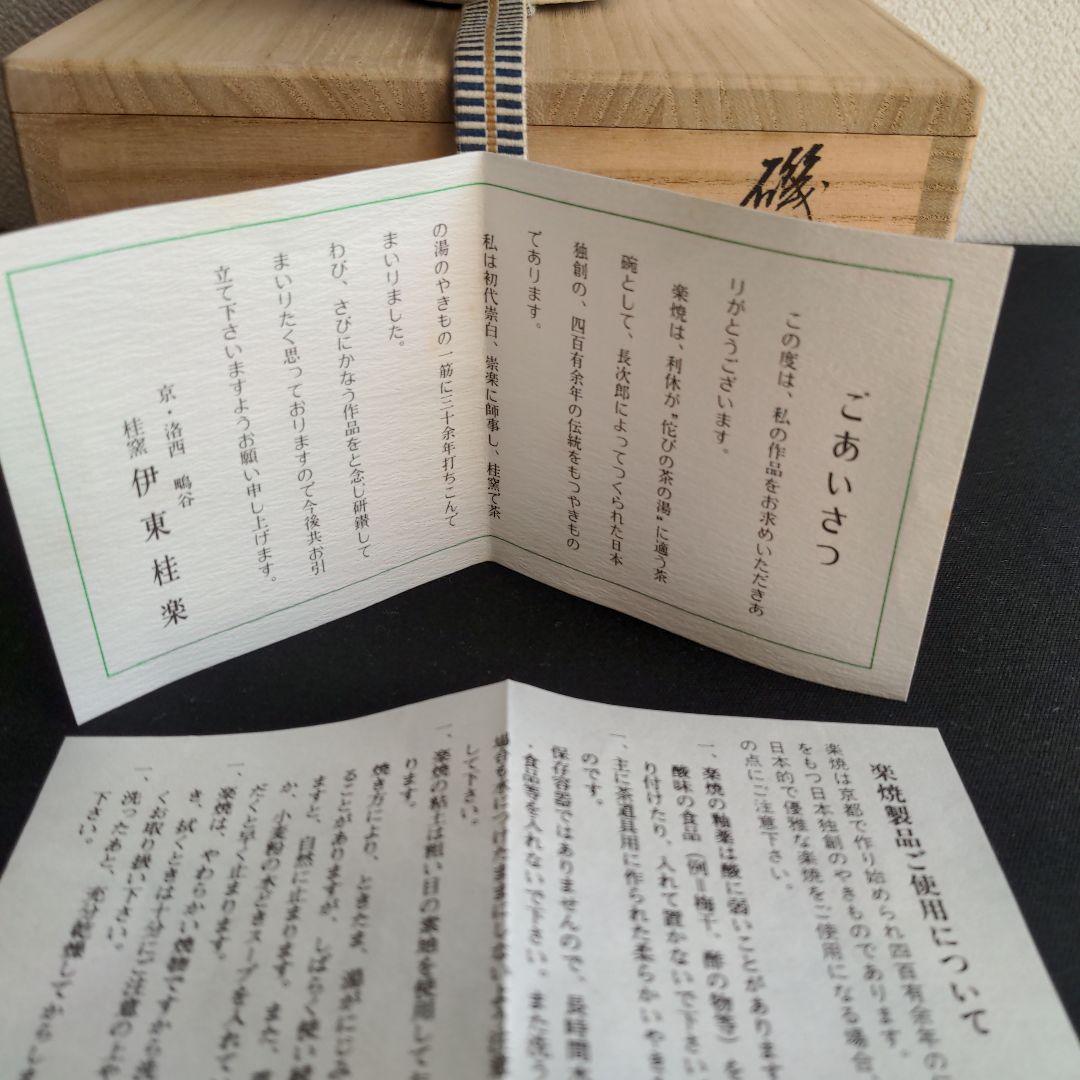 磯
ごあいさつ
この度は、私の作品をお求めいただきあ
りがとうございます。
楽焼は、利休が"侘びの茶の湯"に適う茶
碗として、長次郎によってつくられた日本
独創の、四百有余年の伝統をもつやきもの
であります。
私は初代崇白、崇楽に師事し、桂窯で茶
の湯のやきもの一筋に三十余年打ちこんで
まいりました。
わび、さびにかなう作品をと念じ研鑚して
まいりたく思っておりますので今後共お引
立て下さいますようお願い申し上げます。
京・洛西 鴫谷
桂窯 伊東桂楽
楽焼製品ご使用について
楽焼は京都で作り始められ四百有余年の
をもつ日本独創のやきものであります。
日本的で優雅な楽焼をご使用になる場合
の点にご注意下さい。
一、楽焼の釉薬は酸に弱いことがあります
酸味の食品（例＝梅干、酢の物等）を
り付けたり、入れて置かないで下さい
一、主に茶道具用に作られた柔らかいやき
のです。
保存容器ではありませんので、長時間水
・食品等を入れないで下さい。また洗う
して下さい。
一、楽焼の粘土は粗い目の素地を使用して
ります。
焼き方により、ときたま、湯がにじ
ることがありますが、しばらく使い
ますと、自然に止まります。また、
か、小麦粉の水どきスープを入れて
だくと早く止まります。
一、楽焼は、やわらかい焼物ですから
き、拭くときは十分にご注意の上や
くお取り扱い下さい。
一、洗ったあと、充分乾燥してからし
下さい。